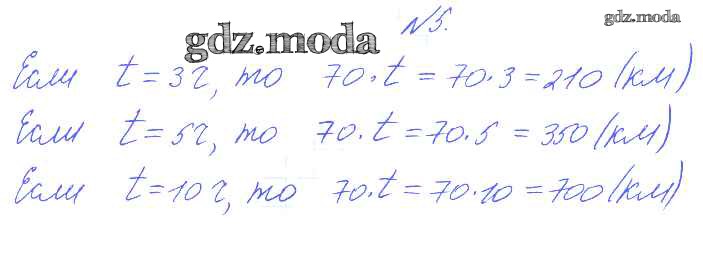 №5.
gdz.moda
gdz.moda
Если t = 3 ч, то 70·t = 70·3 = 210 (км)
Если t = 5 ч, то 70·t = 70·5 = 350 (км)
Если t = 10 ч, то 70·t = 70·10 = 700 (км)